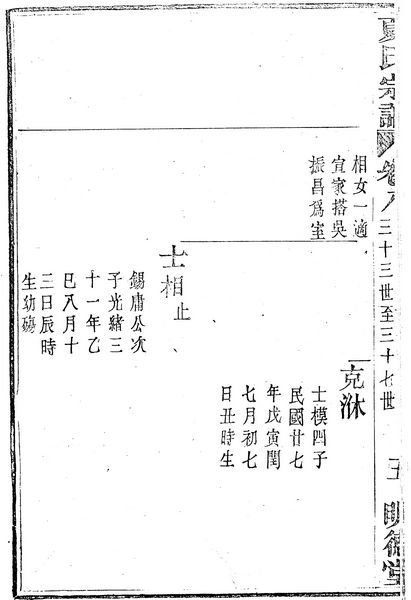 夏氏宗譜
卷八
三十三世至三十七世
五
明德堂
相女一適
宜家搭吳
振昌爲室
克洑
士模四子
民國廿七
年戊寅閏
七月初七
日丑時生
士相止
錫庸公次
子光緒三
十一年乙
巳八月十
三日辰時
生幼殤